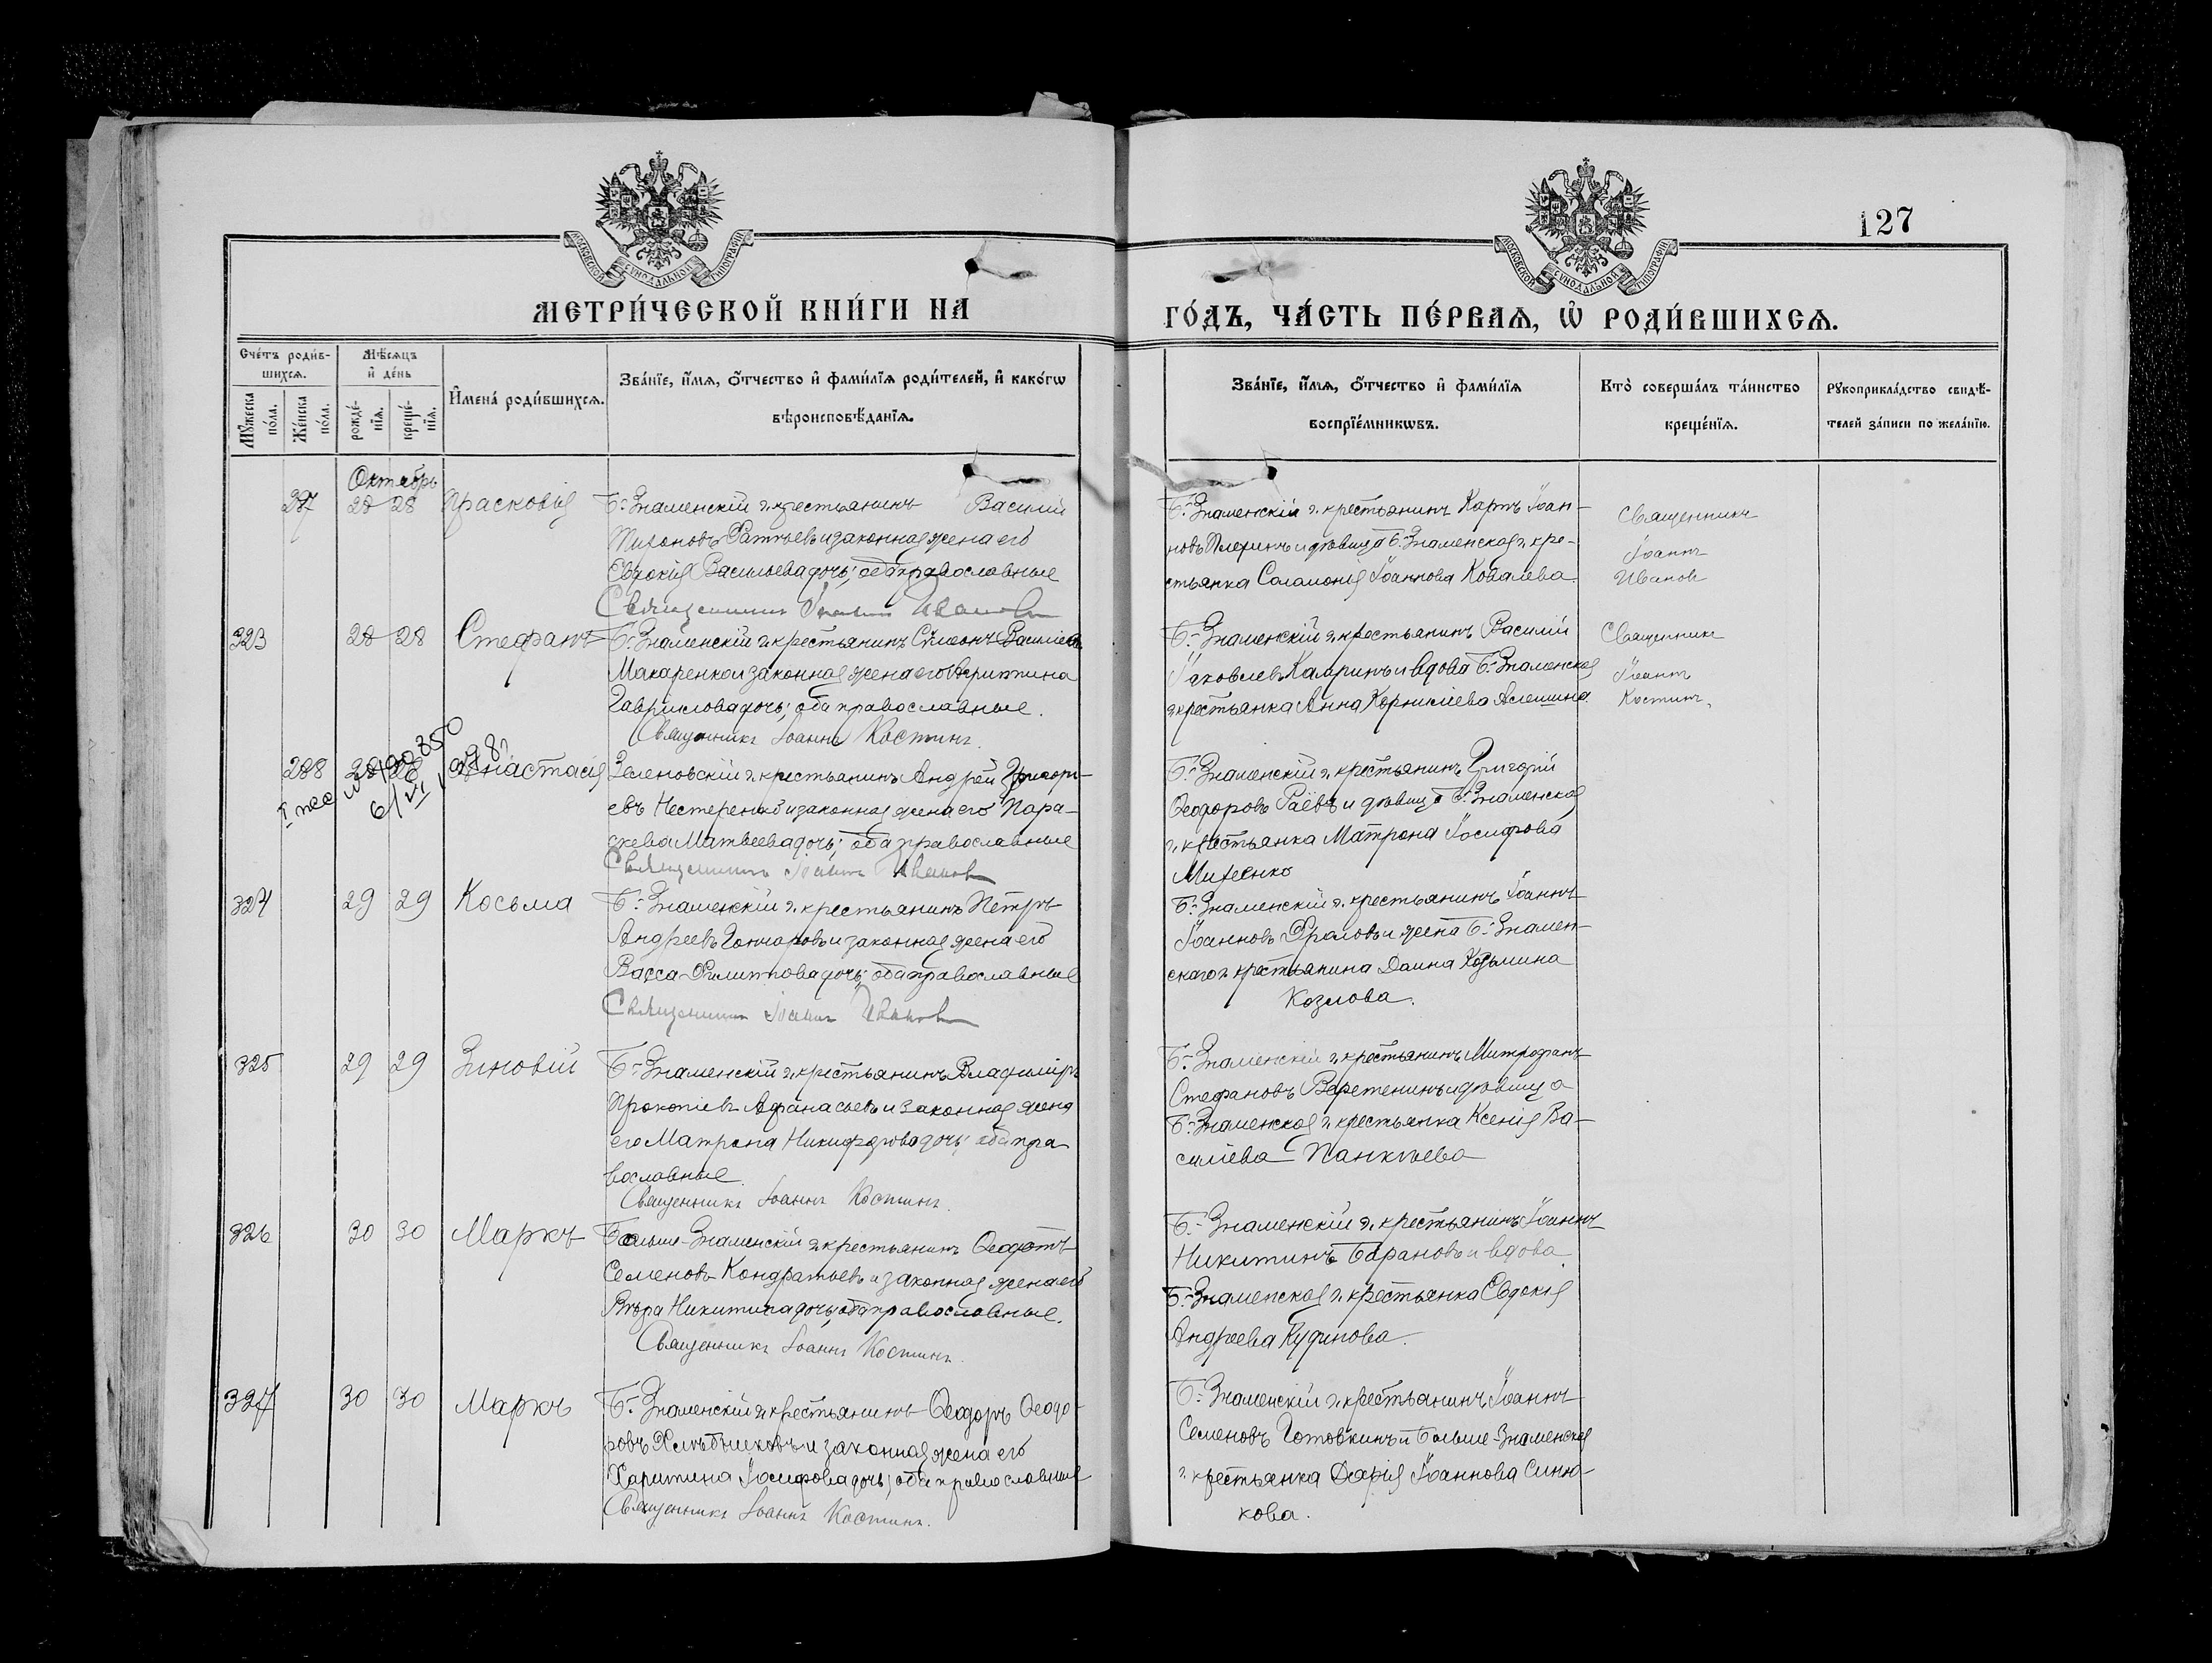 127
МОСКОВСКОЙ СѴНОДАЛЬНОЙ ТИПОГРАФІИ
МОСКОВСКОЙ СѴНОДАЛЬНОЙ ТИПОГРАФІИ
МЕТРИ́ЧЕСКОЙ КНИ́ГИ НА ГО́ДЪ, ЧА́СТЬ ПЕ́РВАЯ, Ѡ РОДИ́ВШИХСЯ.
Сче́тъ роди́в-
шихся.
Му́жеска по́ла.
Же́нска по́ла.
Мѣ́сяцъ
и де́нь
рожде́-
нія.
креще́-
нія.
Имена́ роди́вшихся.
Зва́ніе, и́мя, о́тчество и фами́лія роди́телей, и како́гѡ
вѣроисповѣ́данія.
Зва́ніе, и́мя, о́тчество и фами́лія
воспріе́мникѡвъ.
Кто̀ соверша́лъ та́инство
креще́нія.
Рꙋкоприкла́дство свидѣ́-
телей за́писи по жела́нію.
Октябрь
287 28 28 Прасковія
Б.-Знаменскій г. крестьянинъ Василій
Тихоновъ и законная жена его
Евдокія Васильева дочь; оба православные
Священникъ Іоаннъ Ивановъ
Б.-Знаменскій г. крестьянинъ Карпъ Іоан-
новъ и дѣвица Б.-Знаменская г. кре-
стьянка Саломонія Іоаннова Ковалева
Священникъ
Іоаннъ
Ивановъ
323 28 28 Стефанъ
Б.-Знаменскій г. крестьянинъ Симеонъ Василіевъ
Макаренко и законная жена его
Гавриилова дочь; оба православные.
Священникъ Іоаннъ Костинъ.
Б.-Знаменскій г. крестьянинъ Василій
Іаковлевъ и вдова Б.-Знаменская
г. крестьянка Анна Корниліева Алешина.
Священникъ
Іоаннъ
Костинъ.
288 28 28 Анастасія
Зеленовскій г. крестьянинъ Андрей Григорі-
евъ Нестеренко и законная жена его Пара-
скева Матвеева дочь; оба православные
Священникъ Іоаннъ Ивановъ
Б.-Знаменскій г. крестьянинъ Григорій
Ѳеодоровъ Раёвъ и дѣвица Б.-Знаменская
г. крестьянка Матрона Іосифова
Михеенко
324 29 29 Косьма
Б.-Знаменскій г. крестьянинъ Петръ
Андреевъ Гончаровъ и законная жена его
Васса Филиппова дочь; оба православные
Священникъ Іоаннъ Ивановъ
Б.-Знаменскій г. крестьянинъ Іоаннъ
Іоанновъ Фроловъ и жена Б.-Знамен-
скаго г. крестьянина Домна Козьмина
Козлова.
325 29 29 Зиновій
Б.-Знаменскій г. крестьянинъ Владиміръ
Прокопіевъ Афанасьевъ и законная жена
его Матрона Никифорова дочь; оба пра-
вославные.
Священникъ Іоаннъ Костинъ.
Б.-Знаменскій г. крестьянинъ Митрофанъ
Стефановъ Веретенинъ и дѣвица
Б.-Знаменская г. крестьянка Ксенія Ва-
силіева Панкѣева
326 30 30 Маркъ
Больше-Знаменскій г. крестьянинъ Ѳеодотъ
Семеновъ Кондратьевъ и законная жена его
Вѣра Никитина дочь; оба православные.
Священникъ Іоаннъ Костинъ.
Б.-Знаменскій г. крестьянинъ Іоаннъ
Никитинъ Барановъ и вдова
Б.-Знаменская г. крестьянка Евдокія
Андреева Кудинова.
327 30 30 Маркъ
Б.-Знаменскій г. крестьянинъ Ѳеодоръ Ѳеодо-
ровъ Хлѣбниковъ и законная жена его
Харитина Іосифова дочь; оба православные
Священникъ Іоаннъ Костинъ.
Б.-Знаменскій г. крестьянинъ Іоаннъ
Семеновъ Готовкинъ и Больше-Знаменская
г. крестьянка Дарія Іоаннова Синю-
кова.